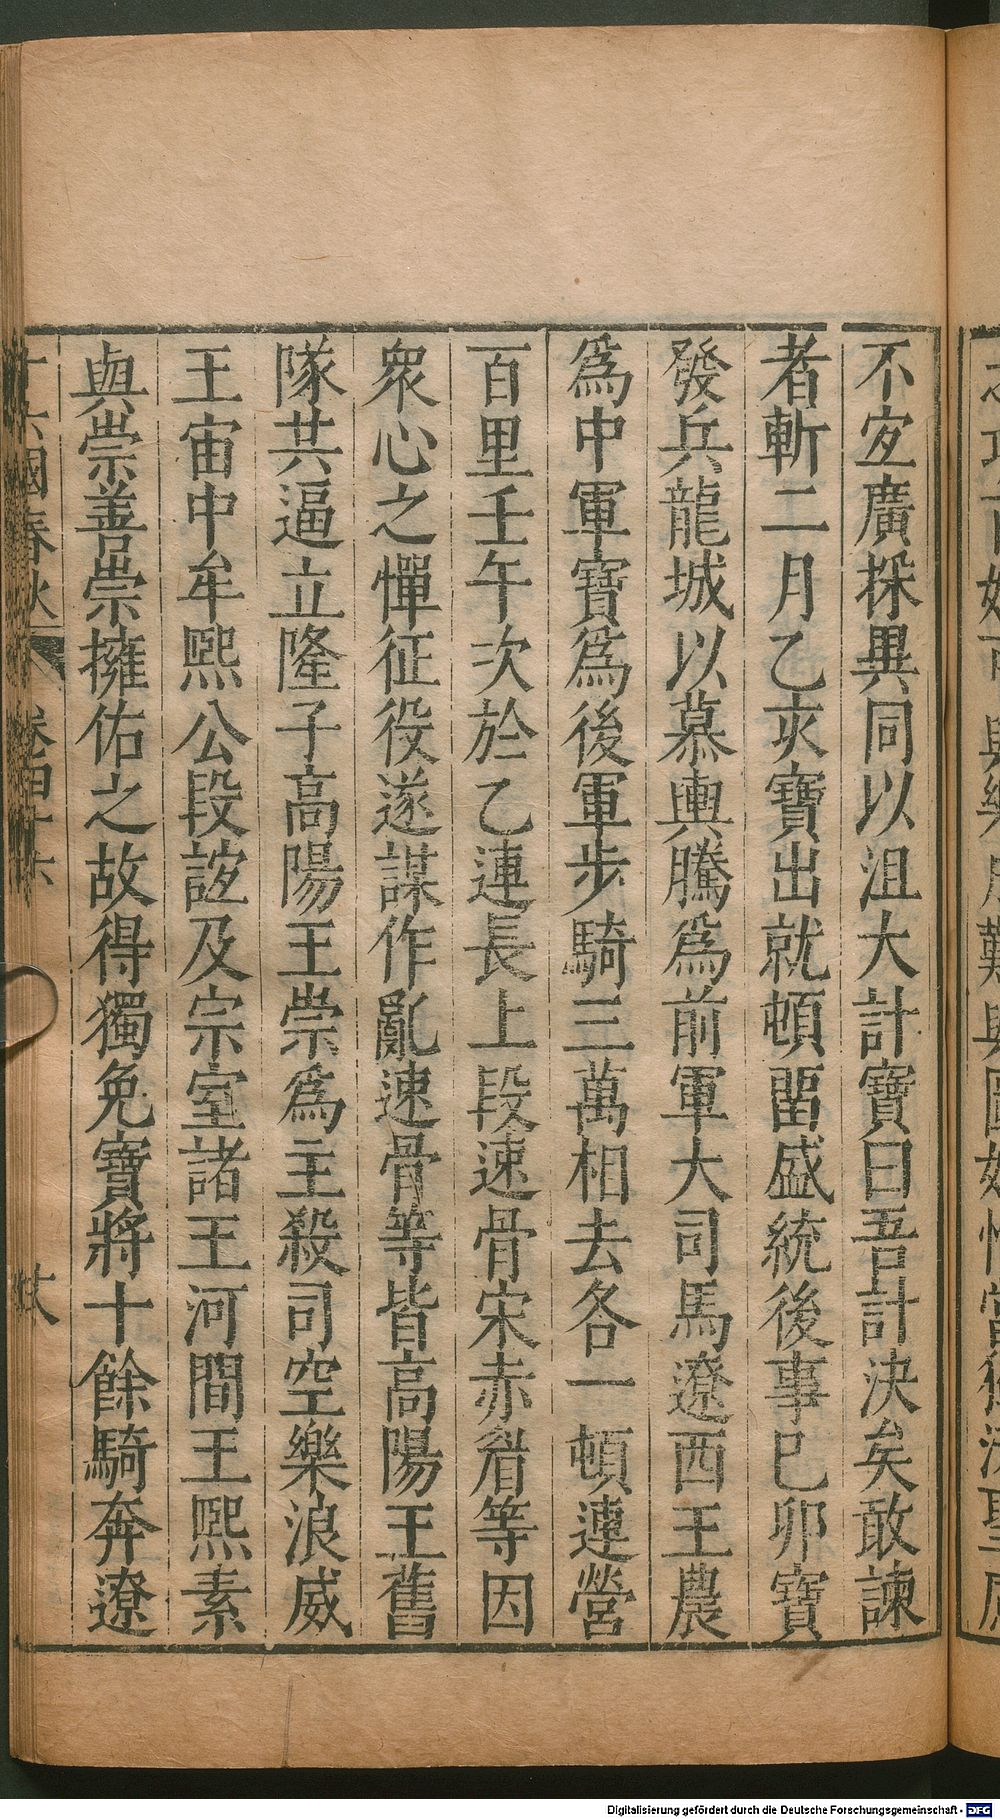 不宐廣採異同以沮大計寶曰吾計決矣敢諫
者斬二月乙亥寶出就頓畱盛統後事巳卯寶
發兵龍城以慕輿騰爲前軍大司馬遼西王農
爲中軍寶爲後軍步騎三萬相去各一頓連營
百里壬午次於乙連長上段速骨宋赤眉等因
衆心之憚征役遂謀作亂速骨等皆高陽王舊
隊共逼立隆子高陽王崇爲主殺司空樂浪威
王宙中牟熙公段誼及宗室諸王河間王熙素
與崇善崇擁佑之故得獨免寶將十餘騎奔遼
十六國春秋 卷四十六
Digitalisierung gefördert durch die Deutsche Forschungsgemeinschaft - DFG